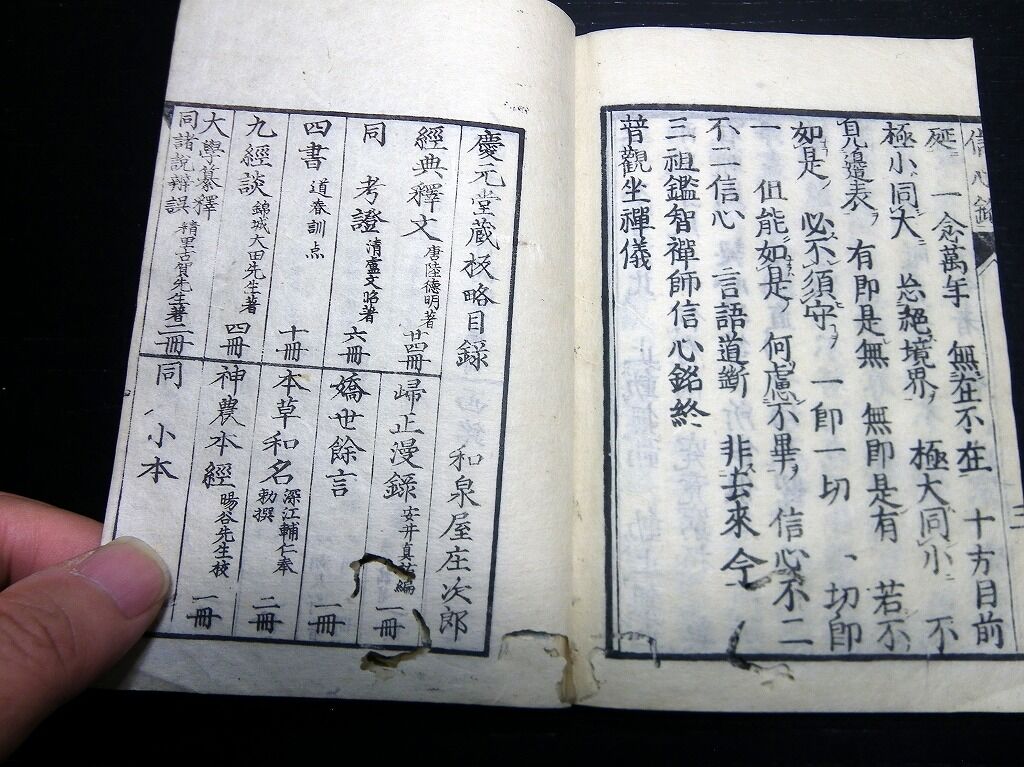 信心銘
延 一念萬年 無在不在 十方目前
極小同大 忘絕境界 極大同小 不
見邊表 有即是無 無即是有 若不
如是 必不須守 一即一切 、切即
一 但能如是 何慮不畢 信心不二
不二信心 言語道斷 非去來今
三祖鑑智禪師信心銘終
普觀坐禪儀
三
慶元堂蔵板略目録 和泉屋庄次郎
經典釋文 唐陸德明著 廿四冊
同 考證 清盧文弨著 六冊
四書 道春訓点 十冊
九經談 錦城大田先生著 四冊
大學纂釋
同諸説辨誤 精里古賀先生著 二冊
歸正漫錄 安井真祐編 一冊
嬌世餘言 一冊
本草和名 深江輔仁奉勅撰 二冊
神農本經 暘谷先生校 一冊
同 小本